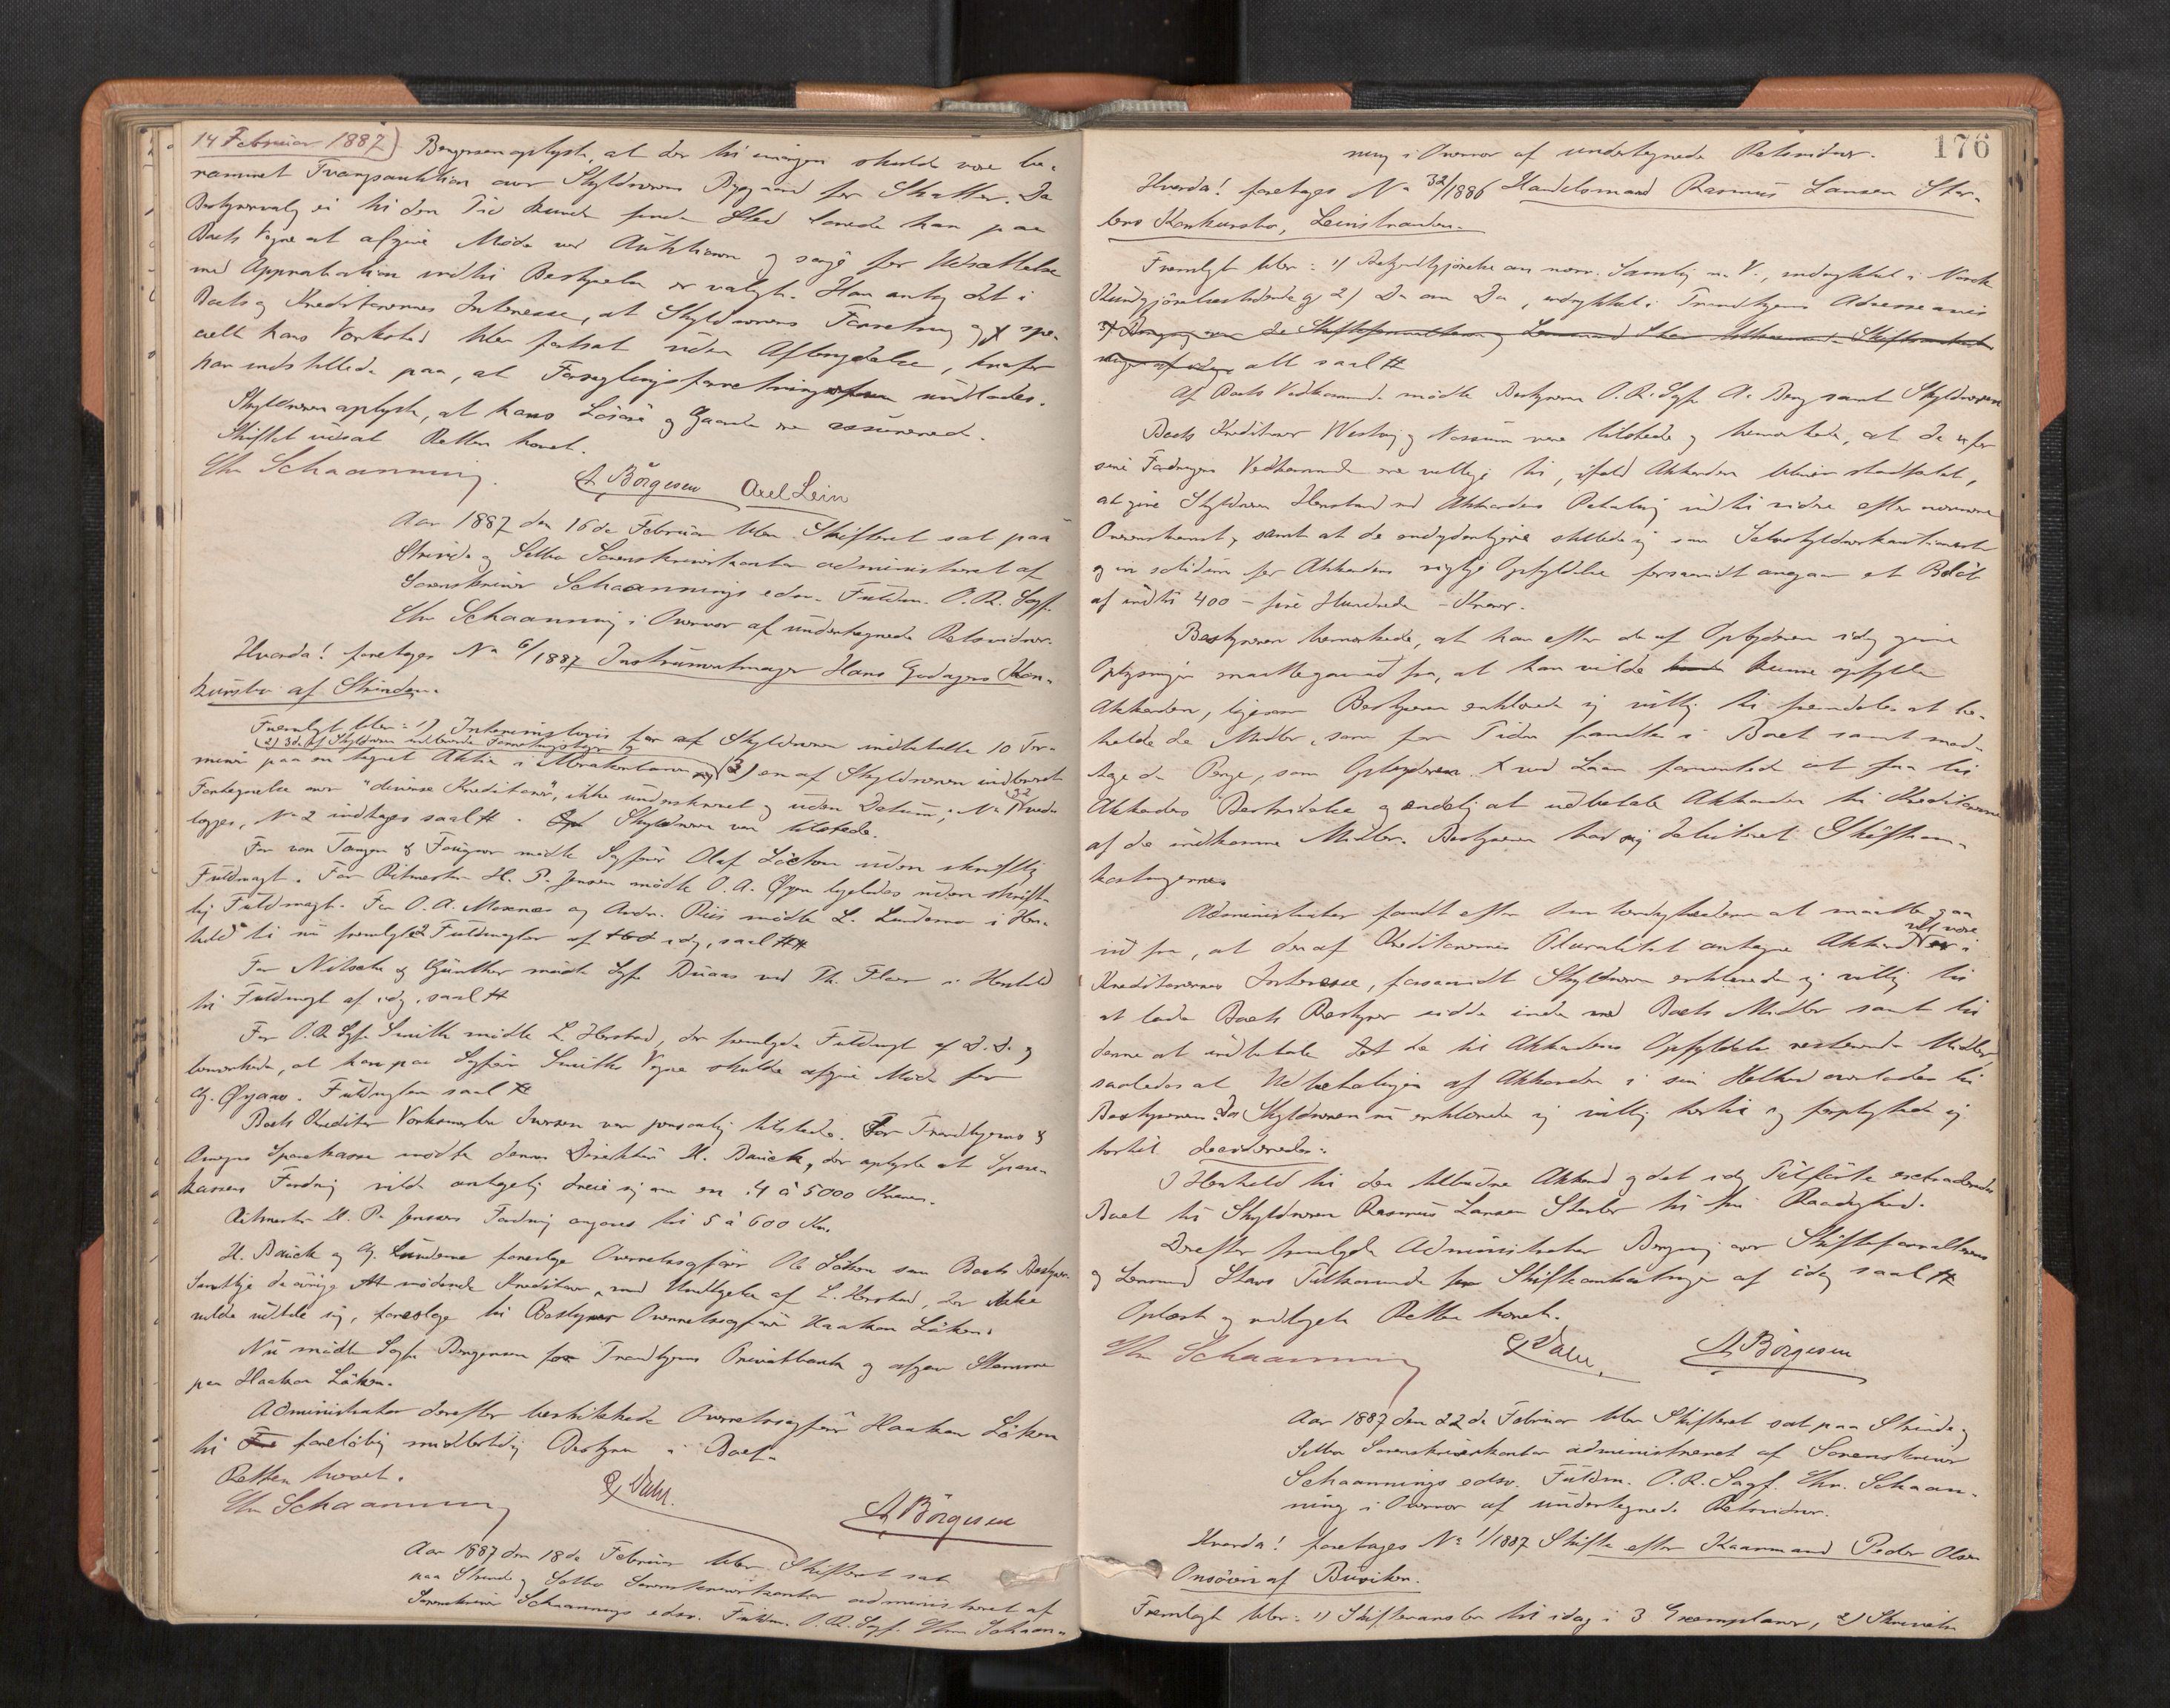 14 Februar 1887) Bengersen oplyste, at der til imorgen skulde være be-
rammet Tvangsauktion over Skyldnerens Bygaard for Skatter. Da
Bestyrervalg ei til den Tid kunde finde Sted lovede han paa
Boets Vegne at afgive Møde ved Auktionen og sørge for Udsættelse
med Approbation indtil Bestyrelse er valgt. Han antog det i
Boets og Kreditorernes Interesse, at Skyldnerens Forretning og spe-
cielt hans Værksted blev fortsat uden Afbrydelse, hvorfor
han indstillede paa, at Forseglingsforretningen undlades.
Skyldneren oplyste, at hans Løsøre og Gaarde var assureret.
Skiftet udsat Retten hævet.
Chr Schaanning. A Börgesen Axel Lein
Aar 1887 den 16de Februar blev Skifteret sat paa
Strinde og Selbo Sorenskriverkontor administreret af
Sorenskriver Schaannings edsv. Fuldm. O.R.Sagf.
Chr Schaanning i Overvær af undertegnede Retsvidner.
Hvorda! foretoges No 6/1887 Instrumentmager Hans Godagers Kon-
kursbo af Strinden.
Fremlagt blev: 1) Interimsbevis for af Skyldneren indbetalte 10 Ter-
2) 3de af Skyldneren indleverede Forretningsbøger og
miner paa en tegnet Aktie i 3) en af Skyldneren indleveret
Fortegnelse over "diverse Kreditorer", ikke underskrevet og uden Datum; No vedr
lægges, No 2 indtages saal. # Skyldneren var tilstede.
For von Tangen & Fougner mødte Sagfører Olaf Løchen uden skriftlig
Fuldmagt. For Ritmester H. P. Jenssen mødte O. A. Øyen ligeledes uden skrift-
lig Fuldmagt. For O. A. Moxnes og Andr. Riis mødte L. Lundemo i Hen-
hold til nu fremlagte 2 Fuldmagter af idag, saal. ##
For Nitsche & Günther mødte Sagf. Duaas ved Th. Floer i Henhold
til Fuldmagt af idag, saal #
For O.R.Sagf. Smith mødte L Herstad, der fremlagde Fuldmagt af D.D. og
bemærkede, at han paa Sagfører Smiths Vegne skulde afgive Møde for
G. Øyaas. Fuldmagten saal #
Boets Kreditor Værksmester Iversen var personlig tilstede. For Trondhjems &
Omegns Sparekasse mødte dennes Direktør H. Bauck, der oplyste at Spare-
kassens Fordring vilde antagelig dreie sig om en 4 à 5000 Kroner.
Ritmester H. P. Jenssens Fordring angaves til 5 à 600 Kr.
H. Bauck og G. Lundemo foreslog Overretssagfører Ole Løken som Boets Bestyrer
Samtlige de øvrige mødende Kreditorer, med Undtagelse af L. Herstad, der ikke
vilde udtale sig, foreslog til Bestyrer Overretssagfører Haakon Løken.
Nu mødte Sagf. Bengersen for Trondhjems Privatbank og afgav Stemme
paa Haakon Løken.
Administrator derefter beskikkede Overretssagfører Haakon Løken
til foreløbig midlertidig Bestyrer i Boet.
Retten hævet.
Chr Schaanning A Börgesen
Aar 1887 den 18de Februar blev Skifteret sat
paa Strinde og Selbo Sorenskriverkontor administreret af
Sorenskriver Schaannings edsv. Fuldm. O.R.Sagf. Chr Schaan-
176
ning i Overvær af undertegnede Retsvidner.
Hvorda! foretoges No 32/1886 Handelsmand Rasmus Larsen Stør-
lers Konkursbo, Leinstranden.
Fremlagt blev: 1) Bekjendtgjørelse om nærv. Samling m. V., indrykket i Norsk
Kundgjørelsestidende og 2) Do om Do, indrykket i Trondhjems Adresseavis
alt saal #
Af Boets Vedkommende mødte Bestyreren O.R.Sagf. A. Berg samt Skyldneren
Boets Kreditorer Westrig og Nossum vare tilstede og bemærkede, at de for
sine Fordringers Vedkommende ere villige til, ifald Akkorden bliver stadfæstet,
at give Skyldneren Henstand med Akkordens Betaling indtil videre efter nærmere
Overenskomst, samt at de endydermere stillede sig som Selvskyldnerkautionister
og in solidum for Akkordens rigtige Opfyldelse forsaavidt angaar et Beløb
af indtil 400 - fire Hundrede - Kroner.
Bestyreren bemærkede, at han efter de af Opbyderen idag givne
Oplysninger maatte gaa ud fra, at han vilde kunne opfylde
Akkorden, ligesom Bestyreren erklærede sig villig til fremdeles at be-
holde de Midler, som for Tiden fandtes i Boet samt mod-
tage de Penge, som Opbyderen ved Laan forventede at faa til
Akkordens Bestridelse og endelig at udbetale Akkorden til Kreditorerne
af de indkomne Midler. Bestyreren har sig debiteret Skifteom-
kostningerne.
Administrator fandt efter Omstændighederne at maatte gaa
ud fra, at den af Kreditorernes Pluralitet antagne Akkord vil være i
Kreditorernes Interesse, forsaavidt Skyldneren erklærede sig villig til
at lade Boets Bestyrer sidde inde med Boets Midler samt til
denne at indbetale de til Akkordens Opfyldelse resterende Midler
saaledes at Udbetalingen af Akkorden i sin Helhed overlades til
Bestyreren. Da Skyldneren nu erklærede sig villig hertil og forpligtede sig
hertil decideredes:
I Henhold til den tilbudne Akkord og det idag Tilførte extraderedes
Boet til Skyldneren Rasmus Larsen Størler til fri Raadighed.
Derefter fremlagde Administrator Beregning over Skifteforvalterens
og Lensmand Stavs Tilkommende for Skifteomkostninger af idag saal #
Oplæst og vedtaget Retten hævet.
Chr Schaanning A Börgesen
Aar 1887 den 22de Februar blev Skifteret sat paa Strinde og
Selbo Sorenskriverkontor administreret af Sorenskriver
Schaannings edsv. Fuldm. O.R.Sagf. Chr. Schaan-
ning i Overvær af undertegnede Retsvidner.
Hvorda! foretoges No 1/1887 Skifte efter Kaarmand Peder Olsen
Onsöien af Buviken.
Fremlagt blev: 1) til idag i 3 Exemplarer, 2) Skrivelse